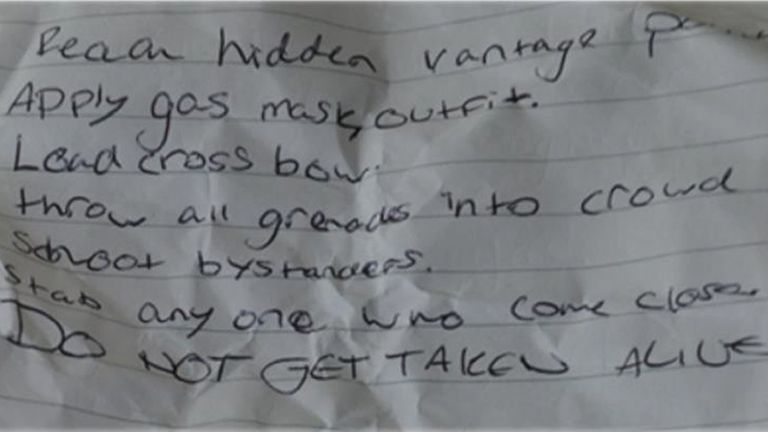 Reach hidden vantage
Apply gas mask, outfit.
Load cross bow.
throw all grenades into crowd
Schoot bystanders.
Stab any one who come close.
DO NOT GET TAKEN ALIVE